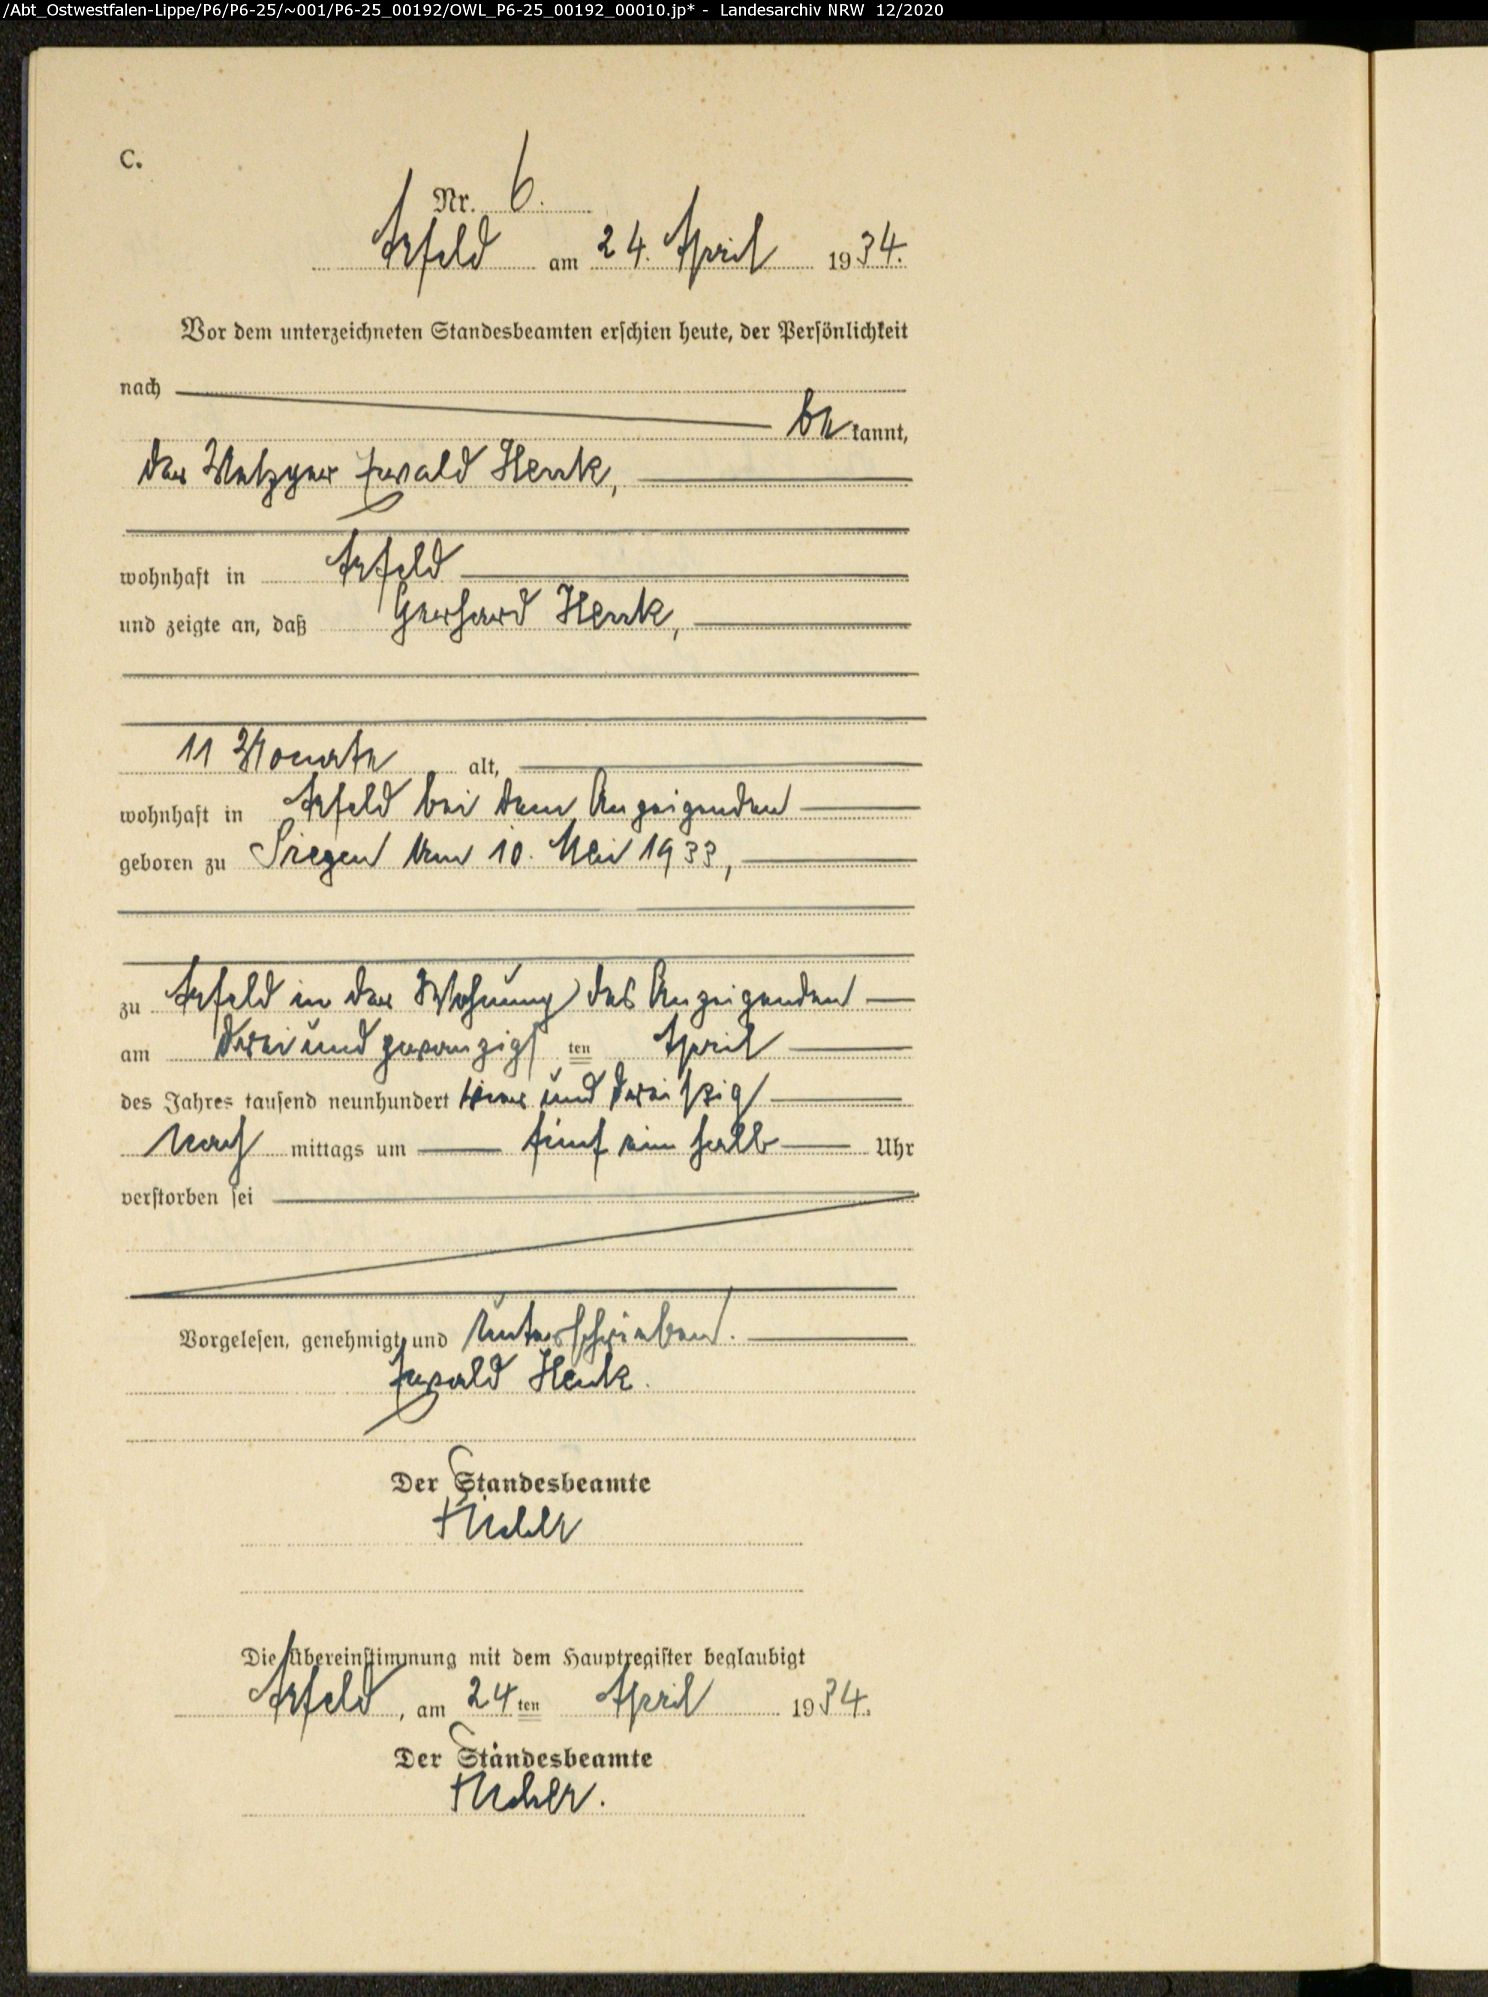 /Abt_Ostwestfalen-Lippe/P6/P6-25/~001/P6-25_00192/OWL_P6-25_00192_00010.jp* - Landesarchiv NRW 12/2020
C.
Nr. 6.
Arfeld am 24. April 1934.
Vor dem unterzeichneten Standesbeamten erschien heute, der Persönlichkeit
nach
be kannt,
der Metzger Ewald Henk,
wohnhaft in Arfeld
und zeigte an, daß Gerhard Henk,
11 Monate alt,
wohnhaft in Arfeld bei dem Anzeigenden
geboren zu Siegen am 10. Mai 1933,
zu Arfeld in der Wohnung des Anzeigenden
am drei und zwanzigs ten April
des Jahres tausend neunhundert vier und dreiszig
Nach mittags um fünf ein halb Uhr
verstorben sei
Vorgelesen, genehmigt und unterschrieben.
Ewald Henk.
Der Standesbeamte
Die Übereinstimmung mit dem Hauptregister beglaubigt
Arfeld, am 24 ten April 1934.
Der Standesbeamte